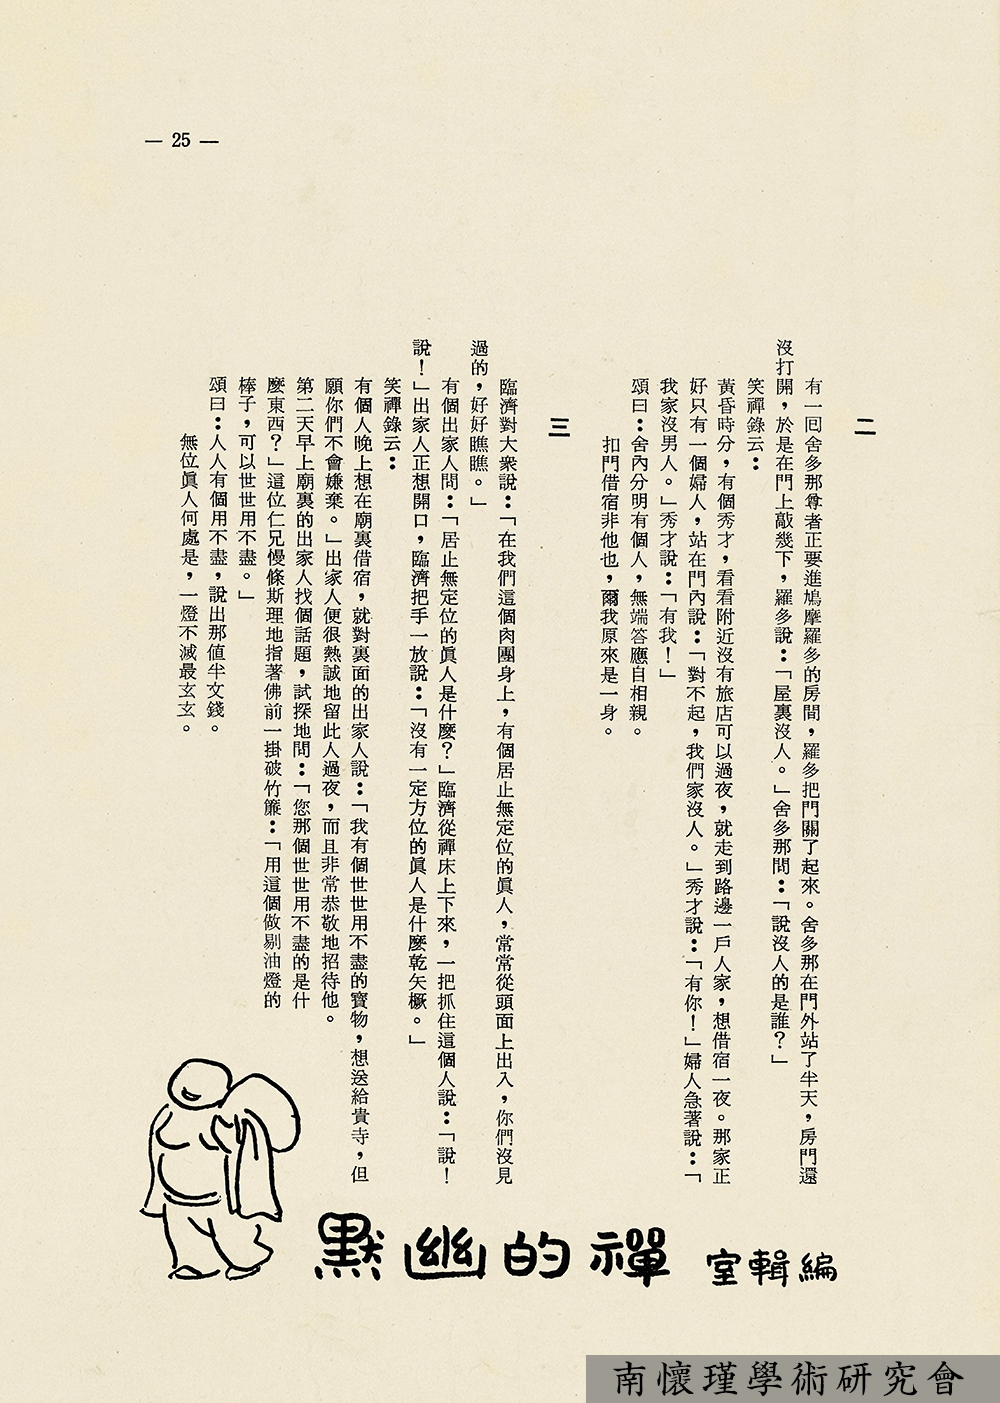 — 25 —
二
有一回舍多那尊者正要進鳩摩羅多的房間，羅多把門關了起來。舍多那在門外站了半天，房門還
沒打開，於是在門上敲幾下，羅多說：「屋裏沒人。」舍多那問：「說沒人的是誰？」
笑禪錄云：
黃昏時分，有個秀才，看看附近沒有旅店可以過夜，就走到路邊一戶人家，想借宿一夜。那家正
好只有一個婦人，站在門內說：「對不起，我們家沒人。」秀才說：「有你！」婦人急著說：「
我家沒男人。」秀才說：「有我！」
頌曰：舍內分明有個人，無端答應自相親。
扣門借宿非他也，爾我原來是一身。
三
臨濟對大衆說：「在我們這個肉團身上，有個居止無定位的眞人，常常從頭面上出入，你們沒見
過的，好好瞧瞧。」
有個出家人問：「居止無定位的眞人是什麼？」臨濟從禪床上下來，一把抓住這個人說：「說！
說！」出家人正想開口，臨濟把手一放說：「沒有一定方位的眞人是什麼乾矢橛。」
笑禪錄云：
有個人晚上想在廟裏借宿，就對裏面的出家人說：「我有個世世用不盡的寶物，想送給貴寺，但
願你們不會嫌棄。」出家人便很熱誠地留此人過夜，而且非常恭敬地招待他。
第二天早上廟裏的出家人找個話題，試探地問：「您那個世世用不盡的是什
麼東西？」這位仁兄慢條斯理地指著佛前一掛破竹簾：「用這個做剔油燈的
棒子，可以世世用不盡。」
頌曰：人人有個用不盡，說出那值半文錢。
無位眞人何處是，一燈不滅最玄玄。
默幽的禪
室輯編
南懷瑾學術研究會